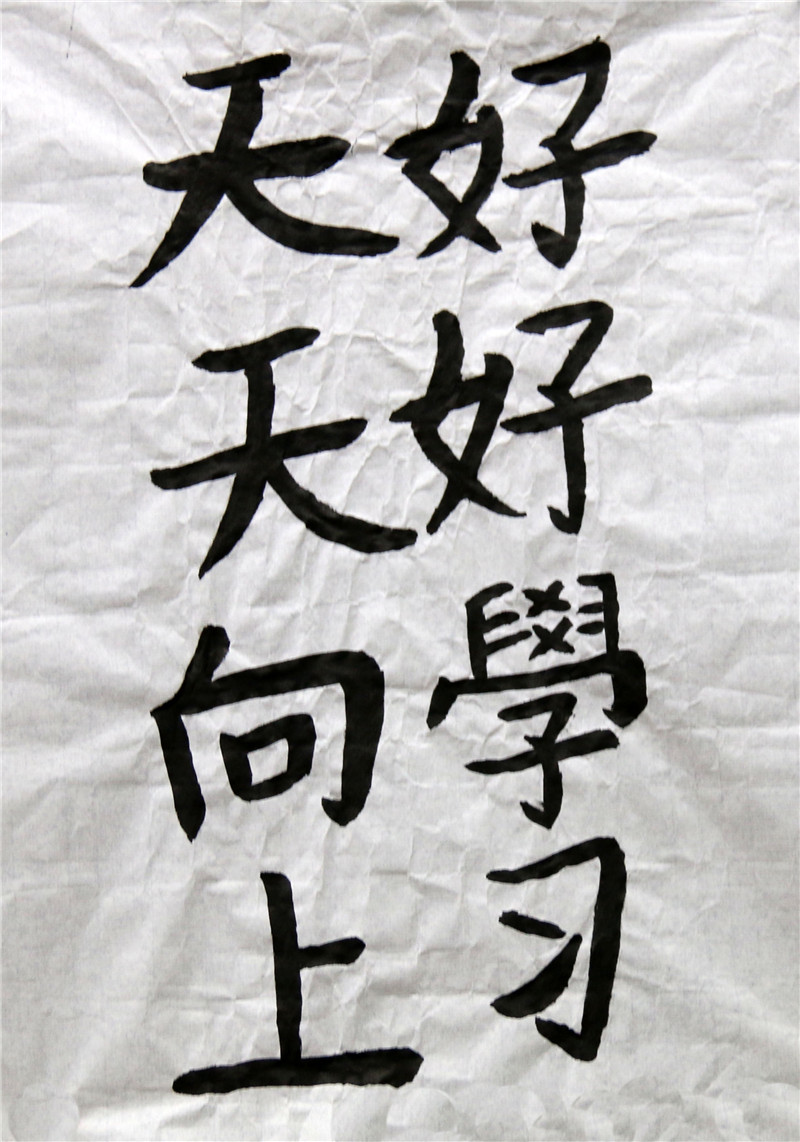 好好學习
天天向上